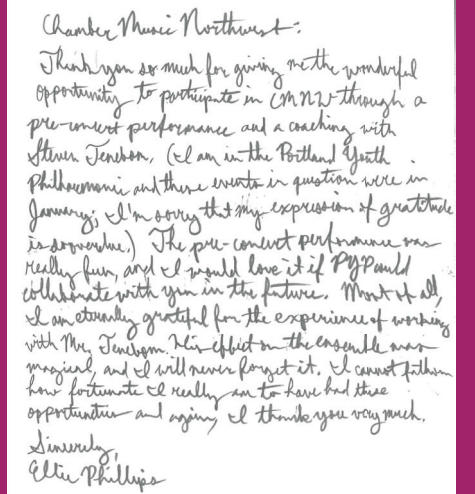 Chamber Music Northwest:
Thank you so much for giving me the wonderful
opportunity to participate in CMNW through a
pre-concert performance and a coaching with
Steven Tenebom. (I am in the Portland Youth
Philharmonic and these events in question were in
January; I'm sorry that my expression of gratitude
is so overdue.) The pre-concert performance was
really fun, and I would love it if PYP could
collaborate with you in the future. Most of all,
I am eternally grateful for the experience of working
with Mr. Tenebom. His effect on the ensemble was
magical, and I will never forget it. I cannot fathom
how fortunate I really am to have had these
opportunities and again, I thank you very much.
Sincerely,
Phillips